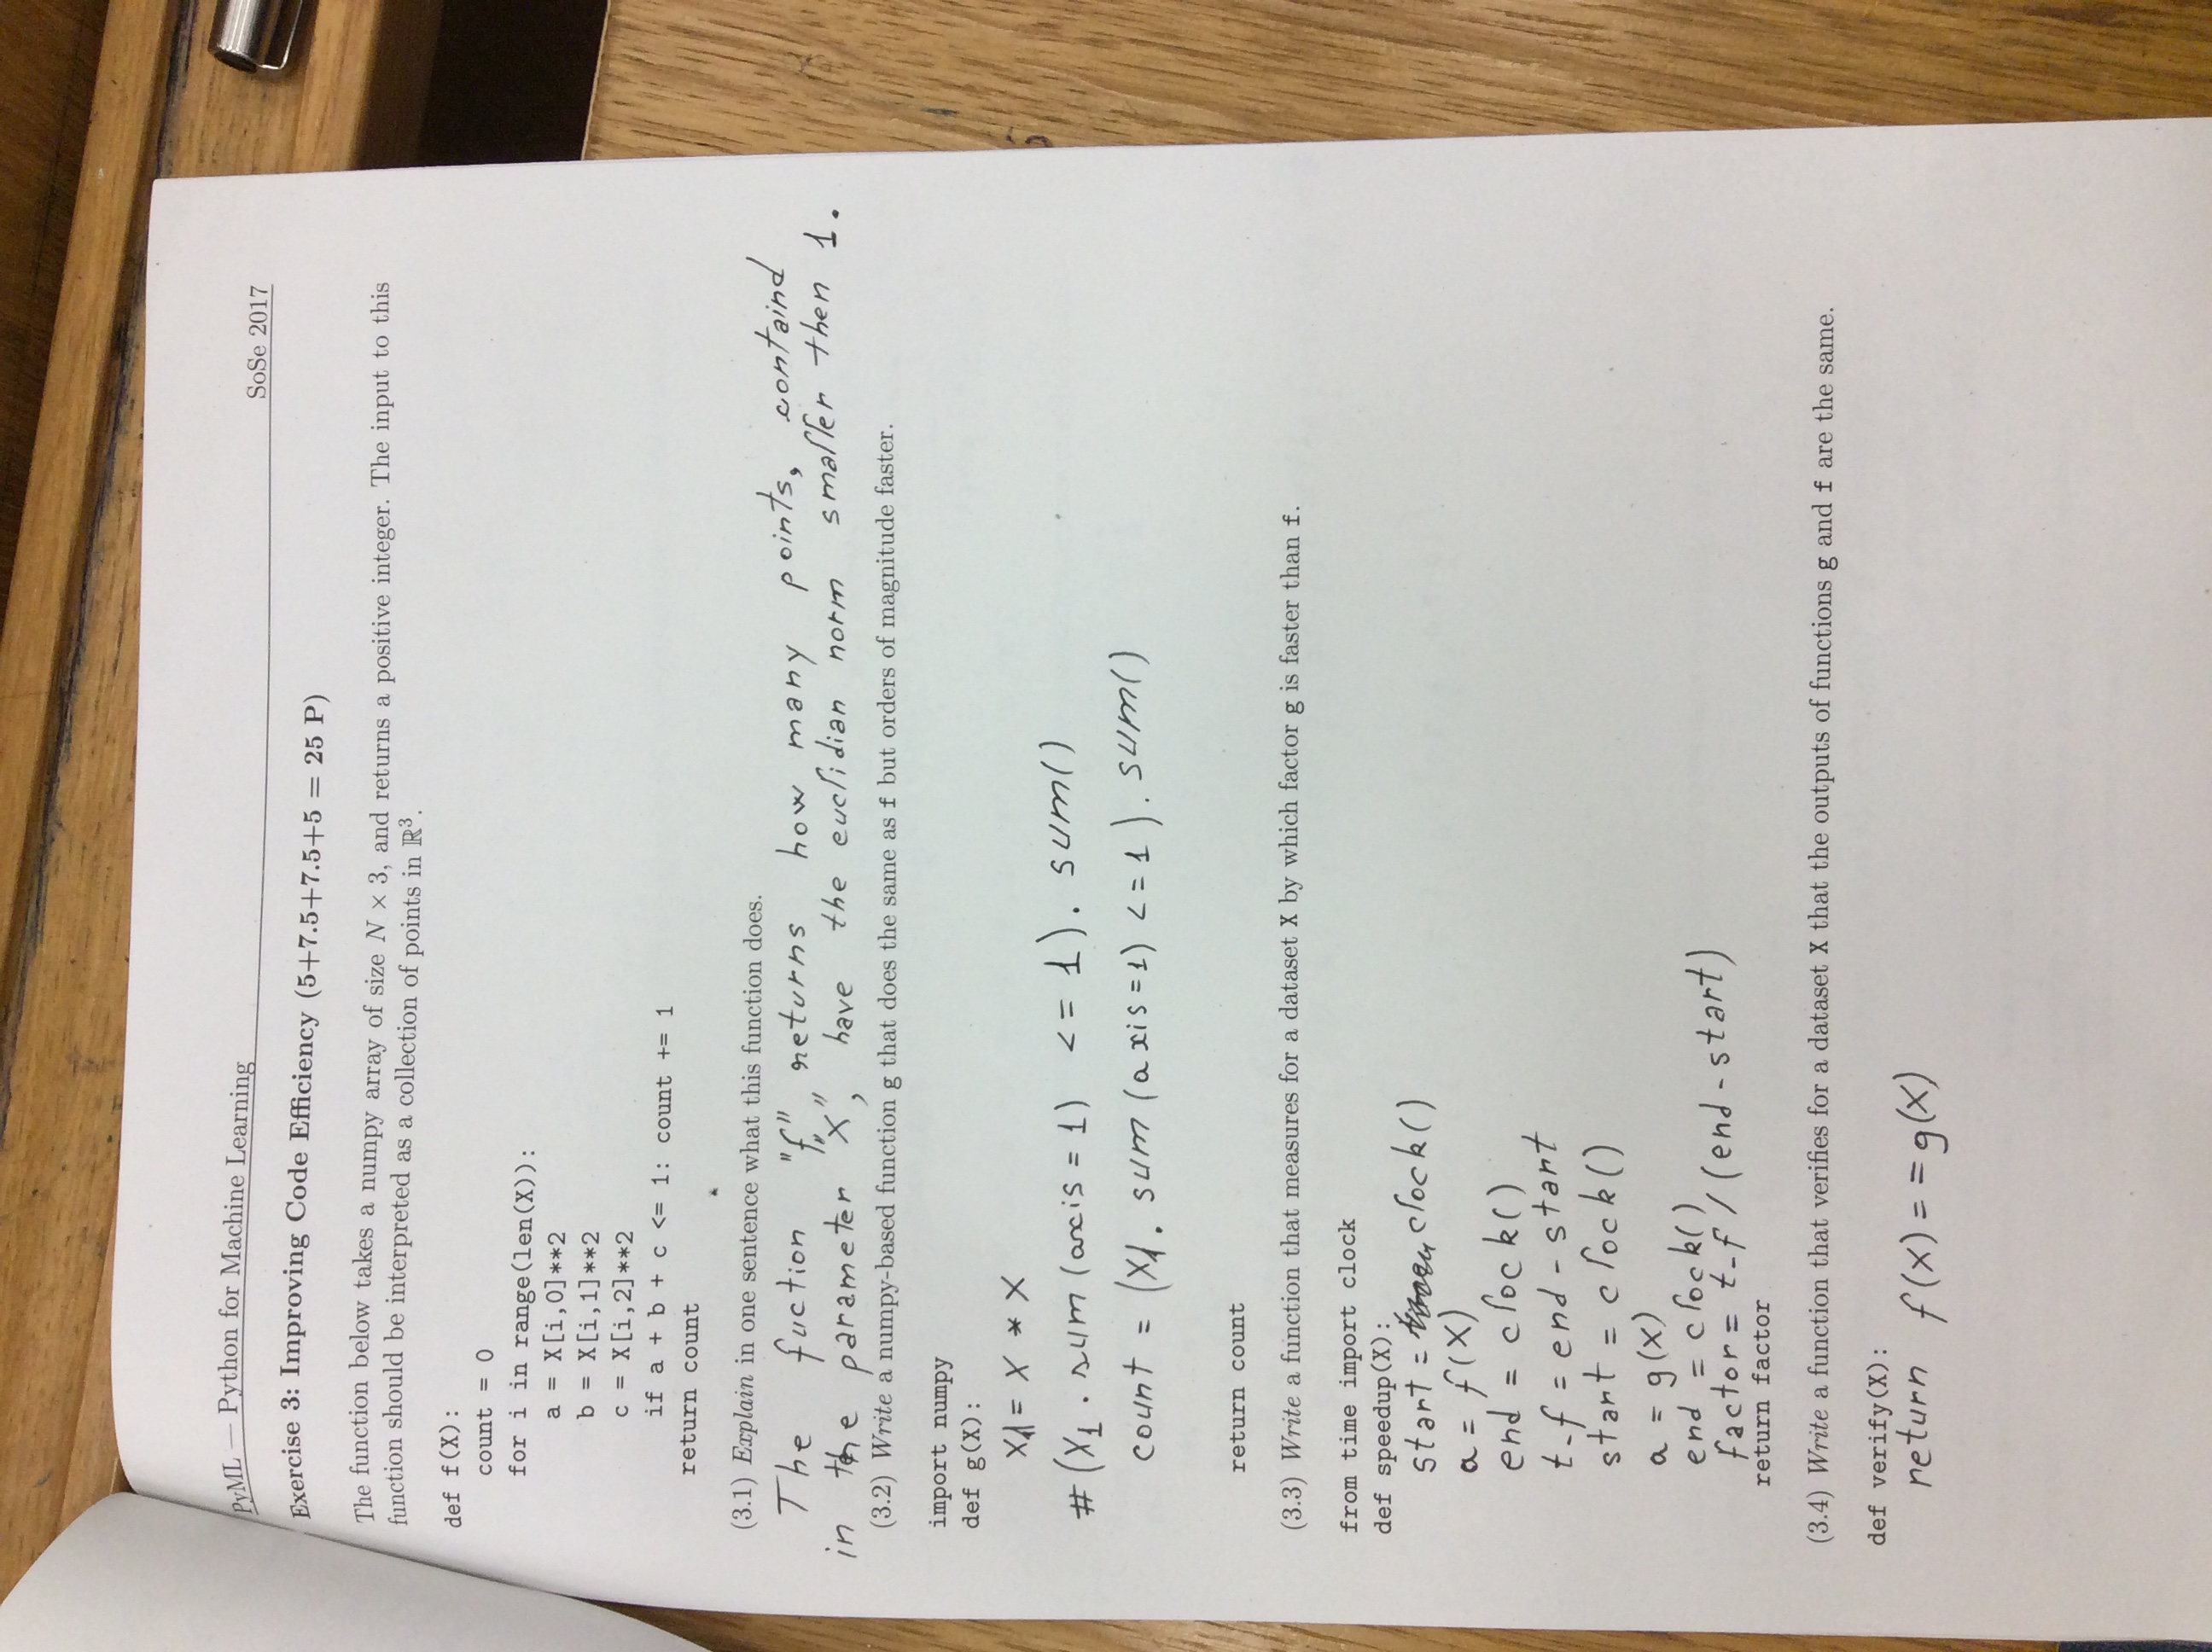 PyML — Python for Machine Learning
SoSe 2017
Exercise 3: Improving Code Efficiency (5+7.5+7.5+5 = 25 P)
The function below takes a numpy array of size N × 3, and returns a positive integer. The input to this
function should be interpreted as a collection of points in ℝ³.
def f(X):
    count = 0
    for i in range(len(X)):
        a = X[i,0]**2
        b = X[i,1]**2
        c = X[i,2]**2
        if a + b + c <= 1: count += 1
    return count
(3.1) Explain in one sentence what this function does.
The fuction "f", returns how many points, containd
in the parameter "X", have the euclidian norm smaller then 1.
(3.2) Write a numpy-based function g that does the same as f but orders of magnitude faster.
import numpy
def g(X):
    X1 = X * X
# (X1 . sum (axis = 1) <= 1). sum()
    count = (X1. sum (axis=1) <= 1). sum()
    return count
(3.3) Write a function that measures for a dataset X by which factor g is faster than f.
from time import clock
def speedup(X):
    start = clock()
    a = f(X)
    end = clock()
    t_f = end - start
    start = clock()
    a = g(X)
    end = clock()
    factor = t_f / (end - start)
    return factor
(3.4) Write a function that verifies for a dataset X that the outputs of functions g and f are the same.
def verify(X):
    return f(X) == g(X)